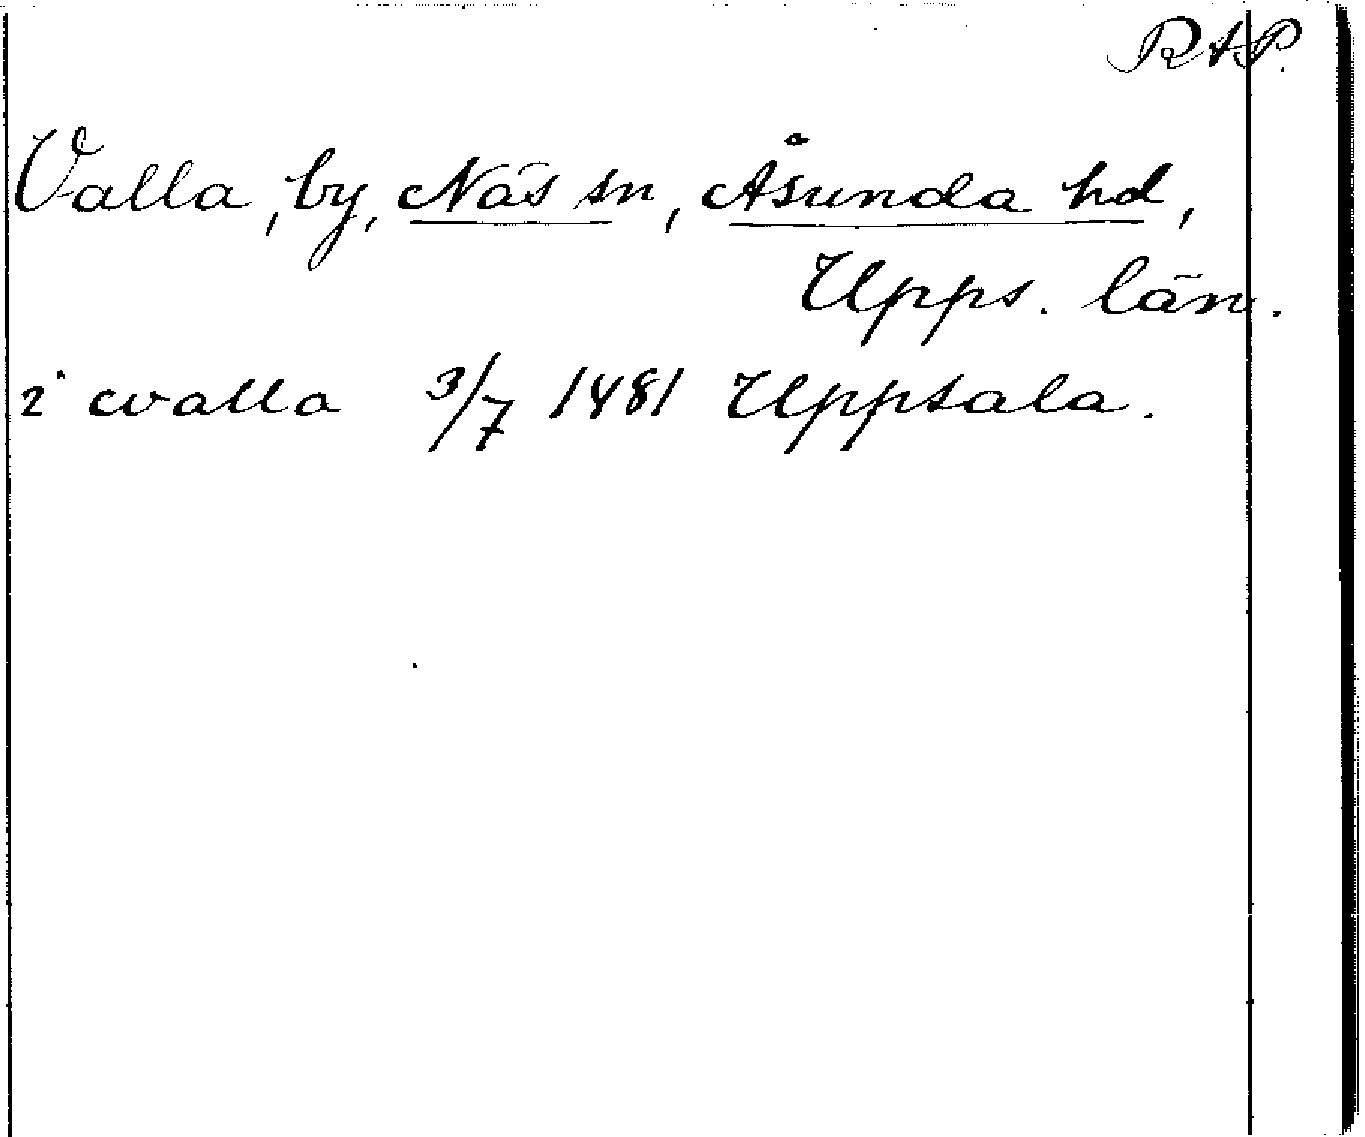 RAP.
Valla, by, Näs sn, Åsunda hd,
Upps. län.
i walla 3/7 1481 Uppsala.